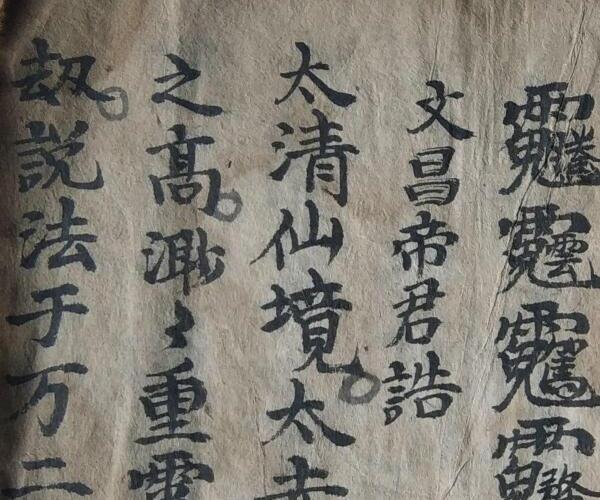 文昌帝君誥
太清仙境太赤
之高渺〻重霄
刼説法于万二